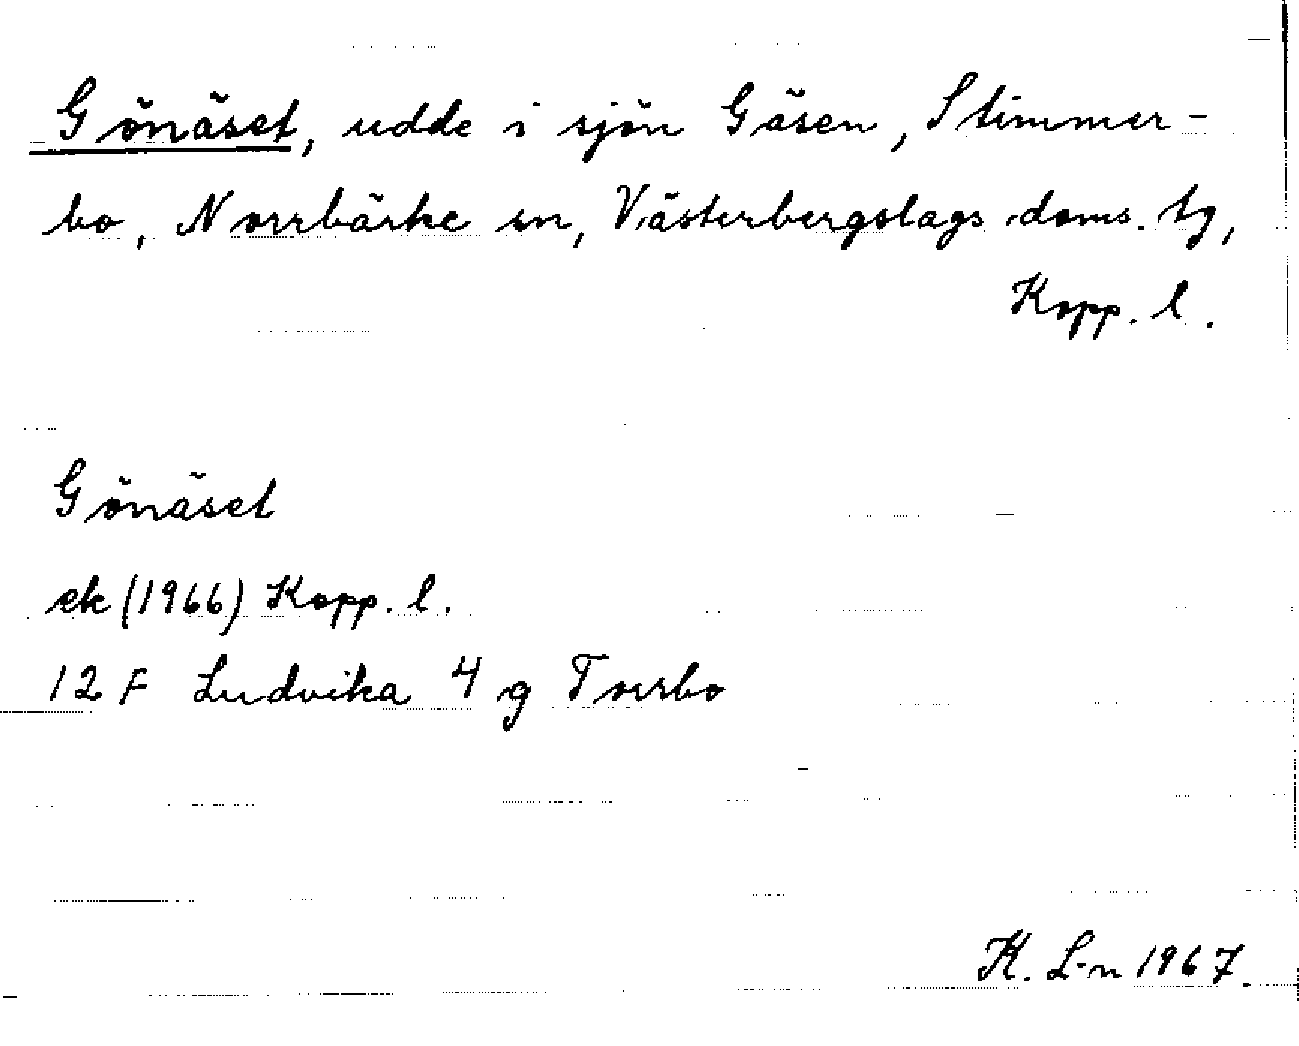 Gönäset, udde i sjön Gäsen, Stimmer-
bo, Norrbärke sn, Västerbergslags doms. tg,
Kopp. l.
Gönäset
ek (1966) Kopp. l.
12 F Ludvika 4 g Torrbo
K. L-n 1967.